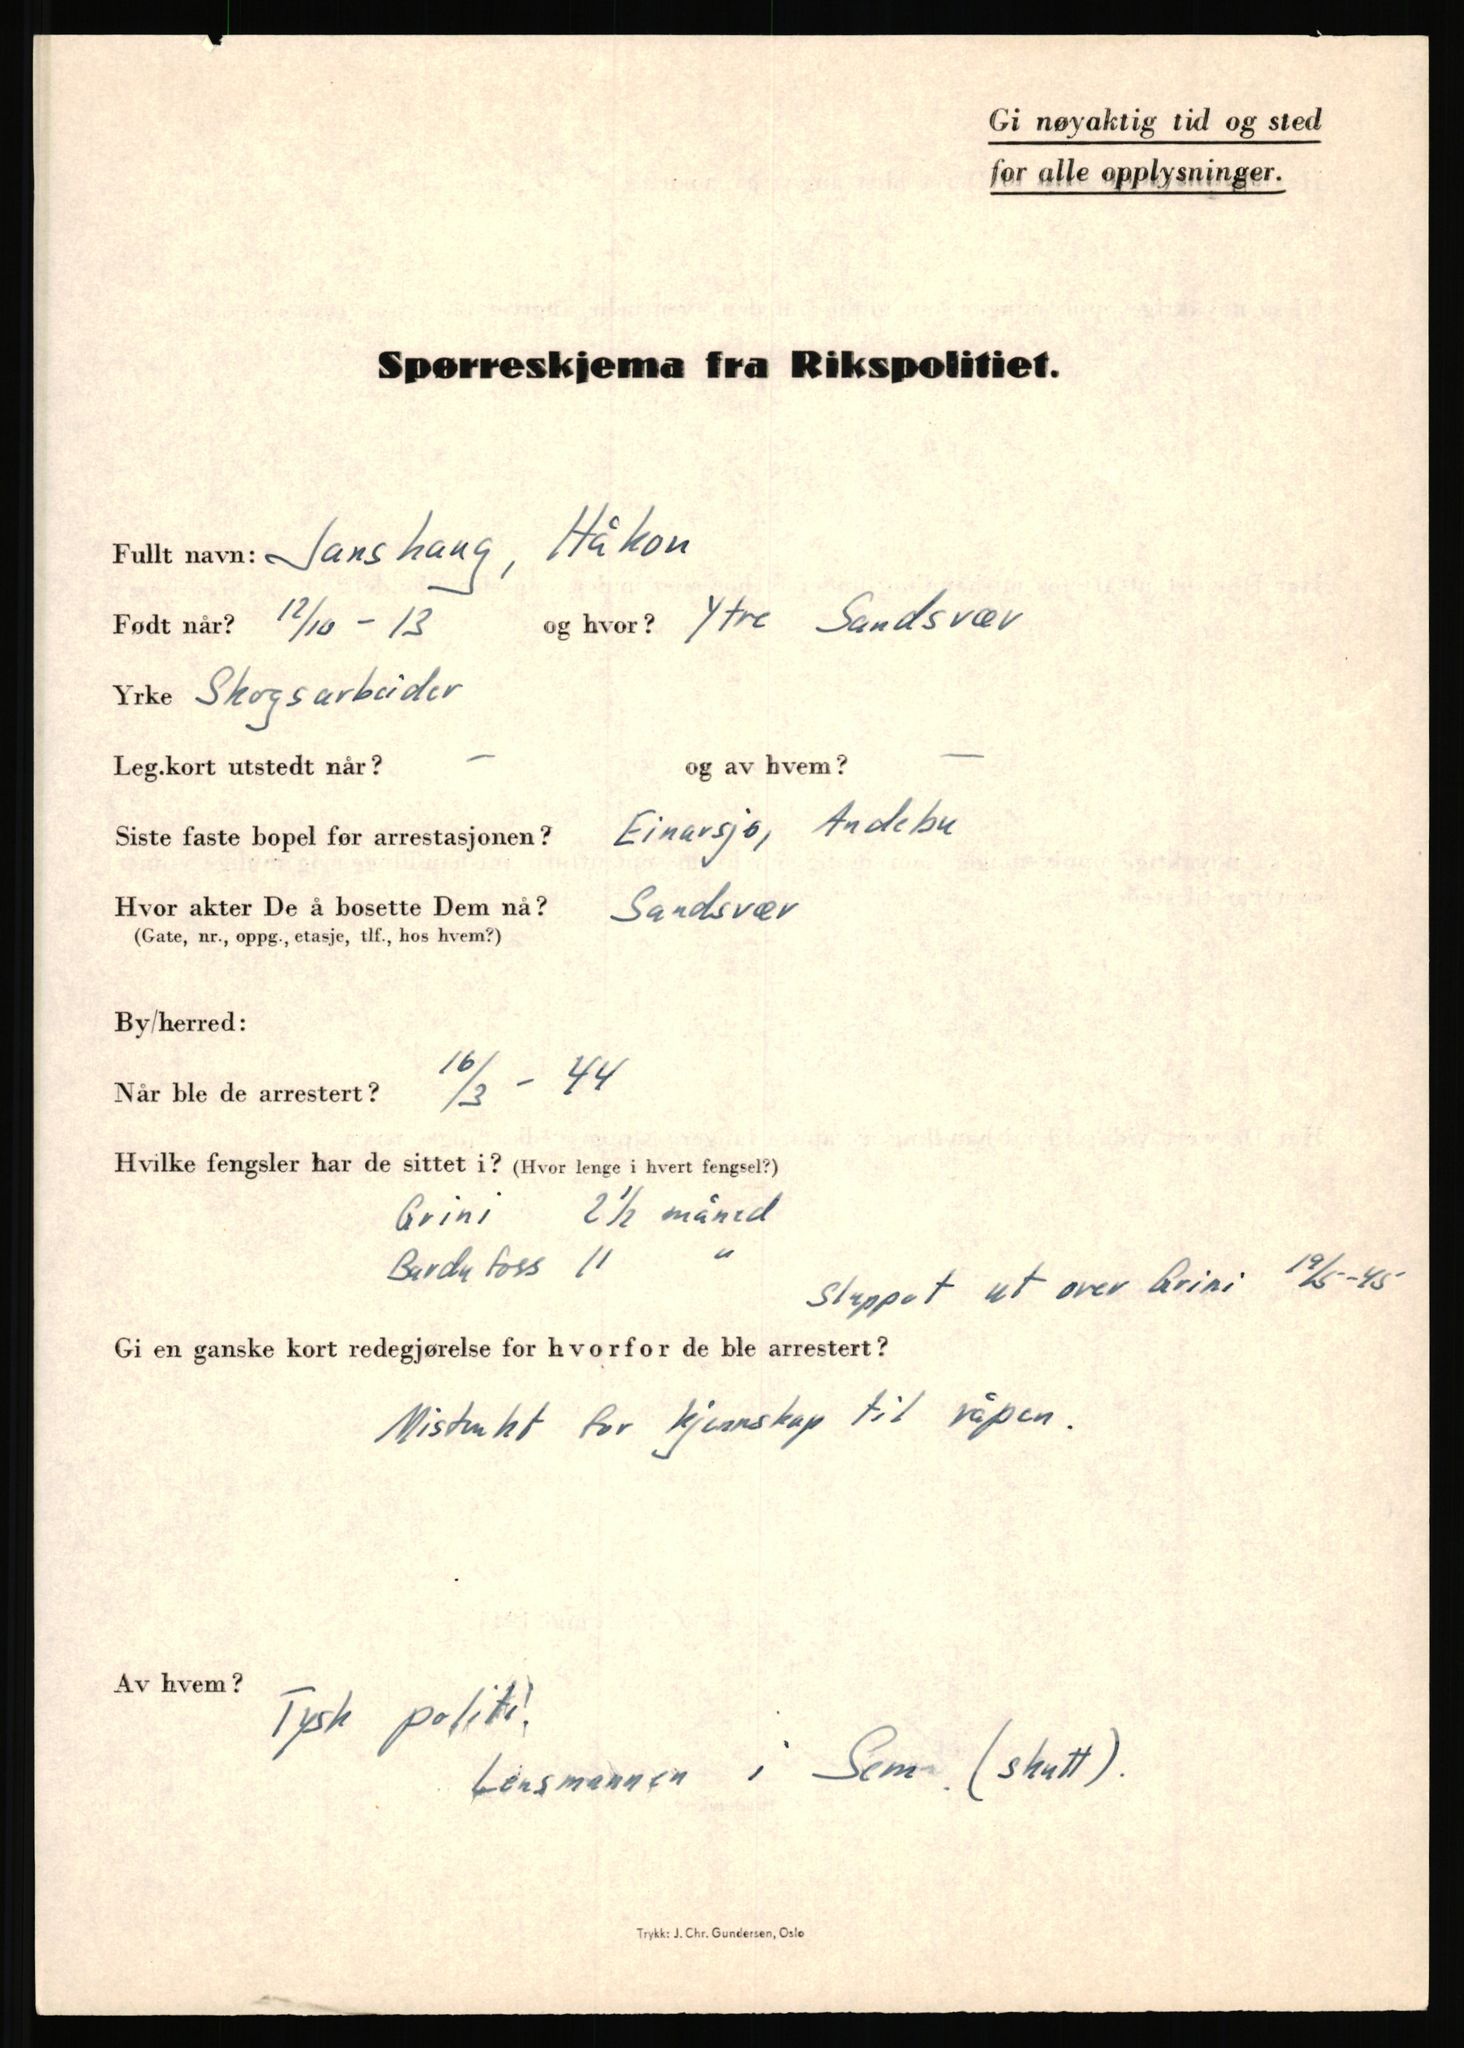 Gi nøyaktig tid og sted
for alle opplysninger.
Spørreskjema fra Rikspolitiet.
Fullt navn: Janshaug, Håkon
Født når? 12/10 - 13 og hvor? Ytre Sandsvær
Yrke Skogsarbeider
Leg.kort utstedt når? – og av hvem? –
Siste faste bopel før arrestasjonen? Einarsjø, Andebu
Hvor akter De å bosette Dem nå? Sandsvær
(Gate, nr., oppg., etasje, tlf., hos hvem?)
By/herred:
Når ble de arrestert? 16/3 - 44
Hvilke fengsler har de sittet i? (Hvor lenge i hvert fengsel?)
Grini 2 1/2 måned
Bardufoss 11 "
Sluppet ut over Grini 19/5-45
Gi en ganske kort redegjørelse for hvorfor de ble arrestert?
Mistenkt for kjennskap til våpen.
Av hvem?
Tysk politi.
Lensmannen i Sem. (skutt).
Trykk: J. Chr. Gundersen, Oslo